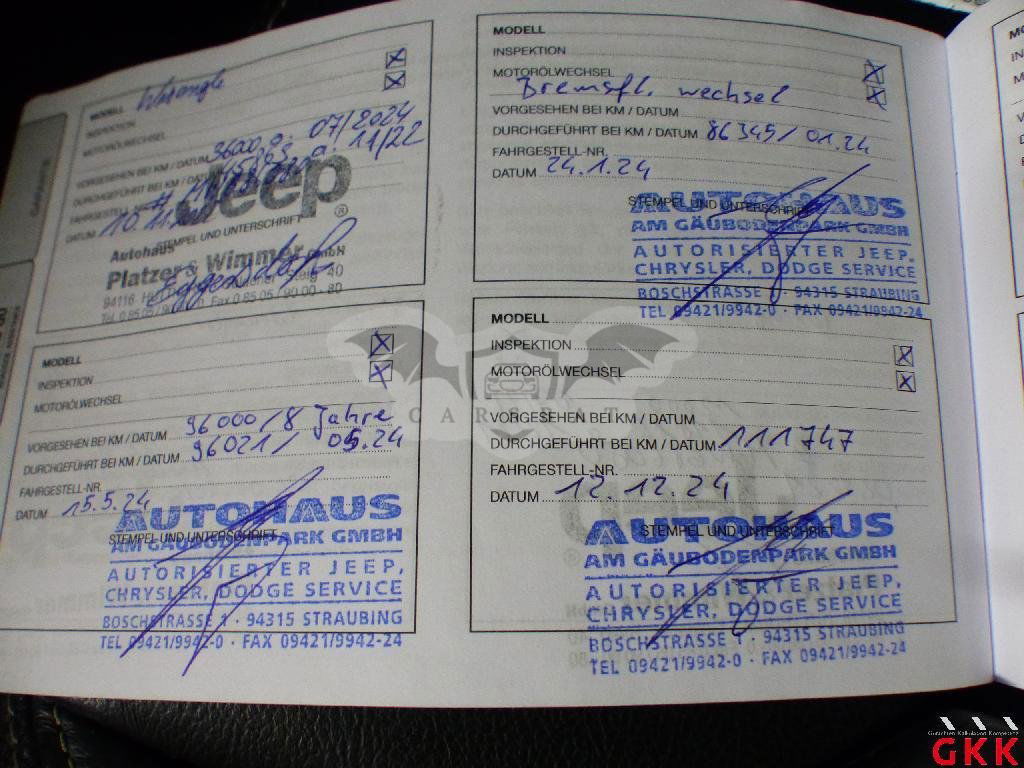 MODELL Wrangler
INSPEKTION
MOTORÖLWECHSEL
VORGESEHEN BEI KM / DATUM 96000 07/2024
DURCHGEFÜHRT BEI KM / DATUM 11/22
FAHRGESTELL-NR.
DATUM 10.11.
Jeep
®
STEMPEL UND UNTERSCHRIFT
Autohaus
Platzer & Wimmer GmbH
94116 40
Tel. 0 85 05 / Fax 0 85 05 / 90 00 - 80
MODELL
INSPEKTION
MOTORÖLWECHSEL
Bremsfl. wechsel
VORGESEHEN BEI KM / DATUM
DURCHGEFÜHRT BEI KM / DATUM 86345 / 01.24
FAHRGESTELL-NR.
DATUM 24.1.24
STEMPEL UND UNTERSCHRIFT
AUTOHAUS
AM GÄUBODENPARK GMBH
AUTORISIERTER JEEP,
CHRYSLER, DODGE SERVICE
BOSCHSTRASSE 1 · 94315 STRAUBING
TEL 09421/9942-0 · FAX 09421/9942-24
MODELL
INSPEKTION
MOTORÖLWECHSEL
VORGESEHEN BEI KM / DATUM 96000 / 8 Jahre
DURCHGEFÜHRT BEI KM / DATUM 96021 / 05.24
FAHRGESTELL-NR.
DATUM 15.5.24
STEMPEL UND UNTERSCHRIFT
AUTOHAUS
AM GÄUBODENPARK GMBH
AUTORISIERTER JEEP,
CHRYSLER, DODGE SERVICE
BOSCHSTRASSE 1 · 94315 STRAUBING
TEL 09421/9942-0 · FAX 09421/9942-24
MODELL
INSPEKTION
MOTORÖLWECHSEL
VORGESEHEN BEI KM / DATUM
DURCHGEFÜHRT BEI KM / DATUM 111747
FAHRGESTELL-NR.
DATUM 12.12.24
STEMPEL UND UNTERSCHRIFT
AUTOHAUS
AM GÄUBODENPARK GMBH
AUTORISIERTER JEEP,
CHRYSLER, DODGE SERVICE
BOSCHSTRASSE 1 · 94315 STRAUBING
TEL 09421/9942-0 · FAX 09421/9942-24
CARSBAT
Gutachten Kalkulation Kompetenz
GKK